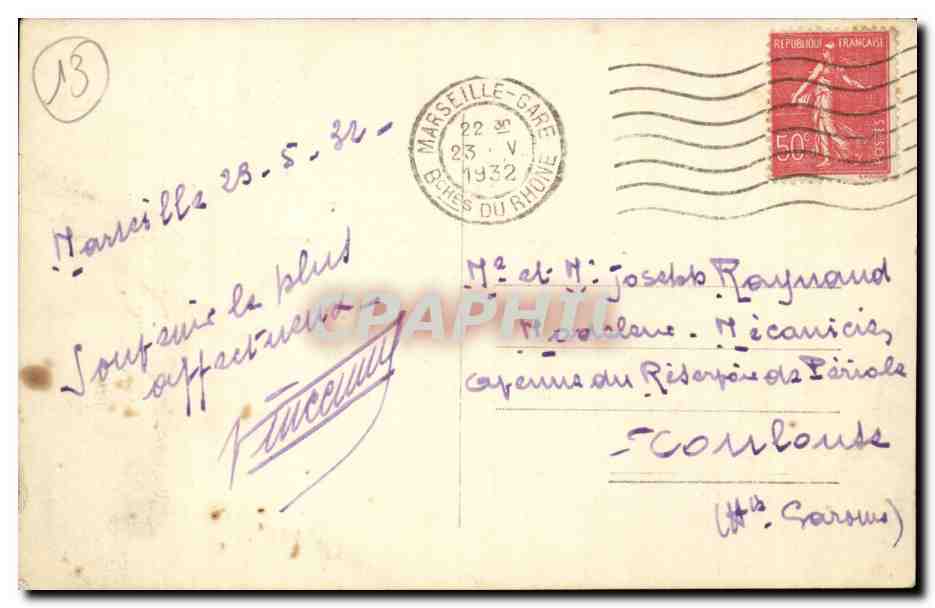 13
MARSEILLE-GARE
22 30
23 · V.
1932
BCHES DU RHÔNE
REPUBLIQUE FRANÇAISE
50c
POSTES
Marseille 23-5-32-
Souvenir le plus
affectueux-
Vincent
Me et Mr Joseph Raynaud
Modeleur-Mécanicien
Avenue du Réservoir de Périole
-Toulouse
(Hte Garonne)
CPAPHIL